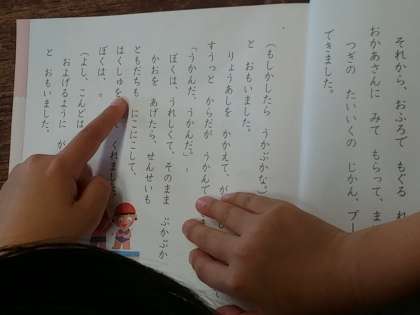 それから、おふろで もぐる れ
おかあさんに みて もらって、ま
できました。
つぎの たいいくの じかん、プー
(もしかしたら うかぶかな。)
と おもいました。
りょうあしを かかえて、が
すうっと からだが うかんで
「うかんだ、うかんだ。」
ぼくは、うれしくて、そのまま ぷかぷか
かおを あげたら、せんせいも
ともだちも にこにこして、
はくしゅを くれました。
ぼくは、
(よし、こんどは
およげるように が
と おもいました。